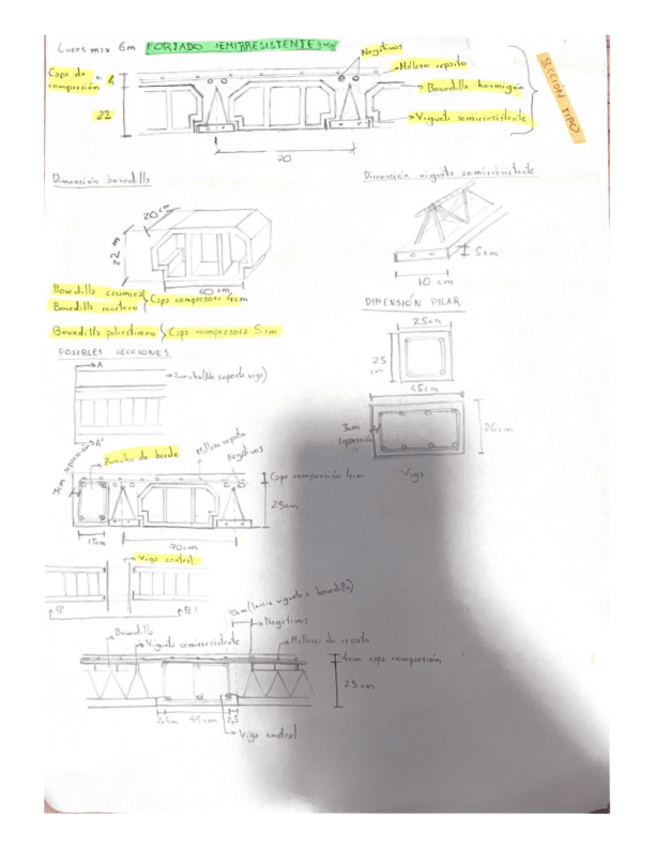 Luces max 6m FORJADO SEMIRRESISTENTE
Negativos
Capa de
compresión
4
Mallazo reparto
Bovedilla hormigón
22
Vigueta semirresistente
SECCIÓN TIPO
70
Dimensión bovedilla
Dimensión vigueta semirresistente
20cm
22 m
60 cm
5cm
10 cm
Bovedilla cerámica
Bovedilla mortero
Capa compresora 4cm
DIMENSIÓN PILAR
Bovedilla poliestireno Capa compresora 5cm
25cm
25
cm
POSIBLES SECCIONES
A
Zuncho (No soporta viga)
45cm
3cm
separación
26cm
A'
Viga
Zuncho de borde
Mallazo reparto
Negativos
3cm separación
Capa compresión 4cm
25cm
15cm
70cm
Viga central
B
B'
10cm (Inicio vigueta o bovedilla)
Negativos
Bovedilla
Vigueta semirresistente
Mallazo de reparto
4cm capa compresión
25cm
2,5cm 45cm 2,5
Viga central